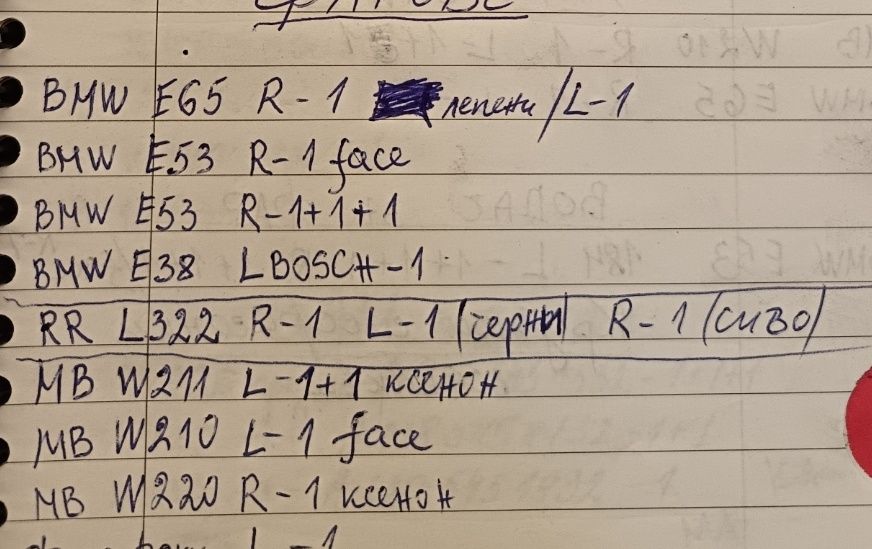 BMW E65 R-1 лепени/L-1
BMW E53 R-1 face
BMW E53 R-1+1+1
BMW E38 L BOSCH-1
RR L322 R-1 L-1 (черны) R-1 (сиво)
MB W211 L-1+1 ксенон
MB W210 L-1 face
MB W220 R-1 ксенон
L-1